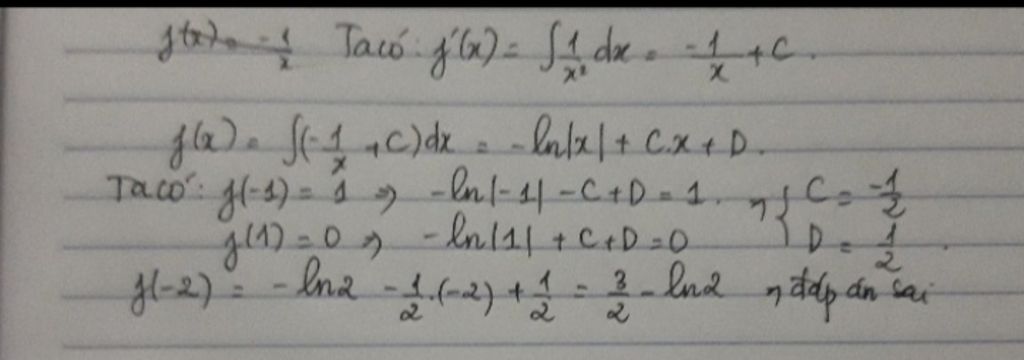 f(x) = -1/x Ta có: f'(x) = ∫ 1/x² dx = -1/x + C.
f(x) = ∫(-1/x + C)dx = -ln|x| + C.x + D.
Ta có: f(-1) = 1 ⇒ -ln|-1| - C + D = 1. ⇒ { C = -1/2
f(1) = 0 ⇒ -ln|1| + C + D = 0 D = 1/2.
f(-2) = -ln2 - 1/2.(-2) + 1/2 = 3/2 - ln2 ⇒ đáp án sai